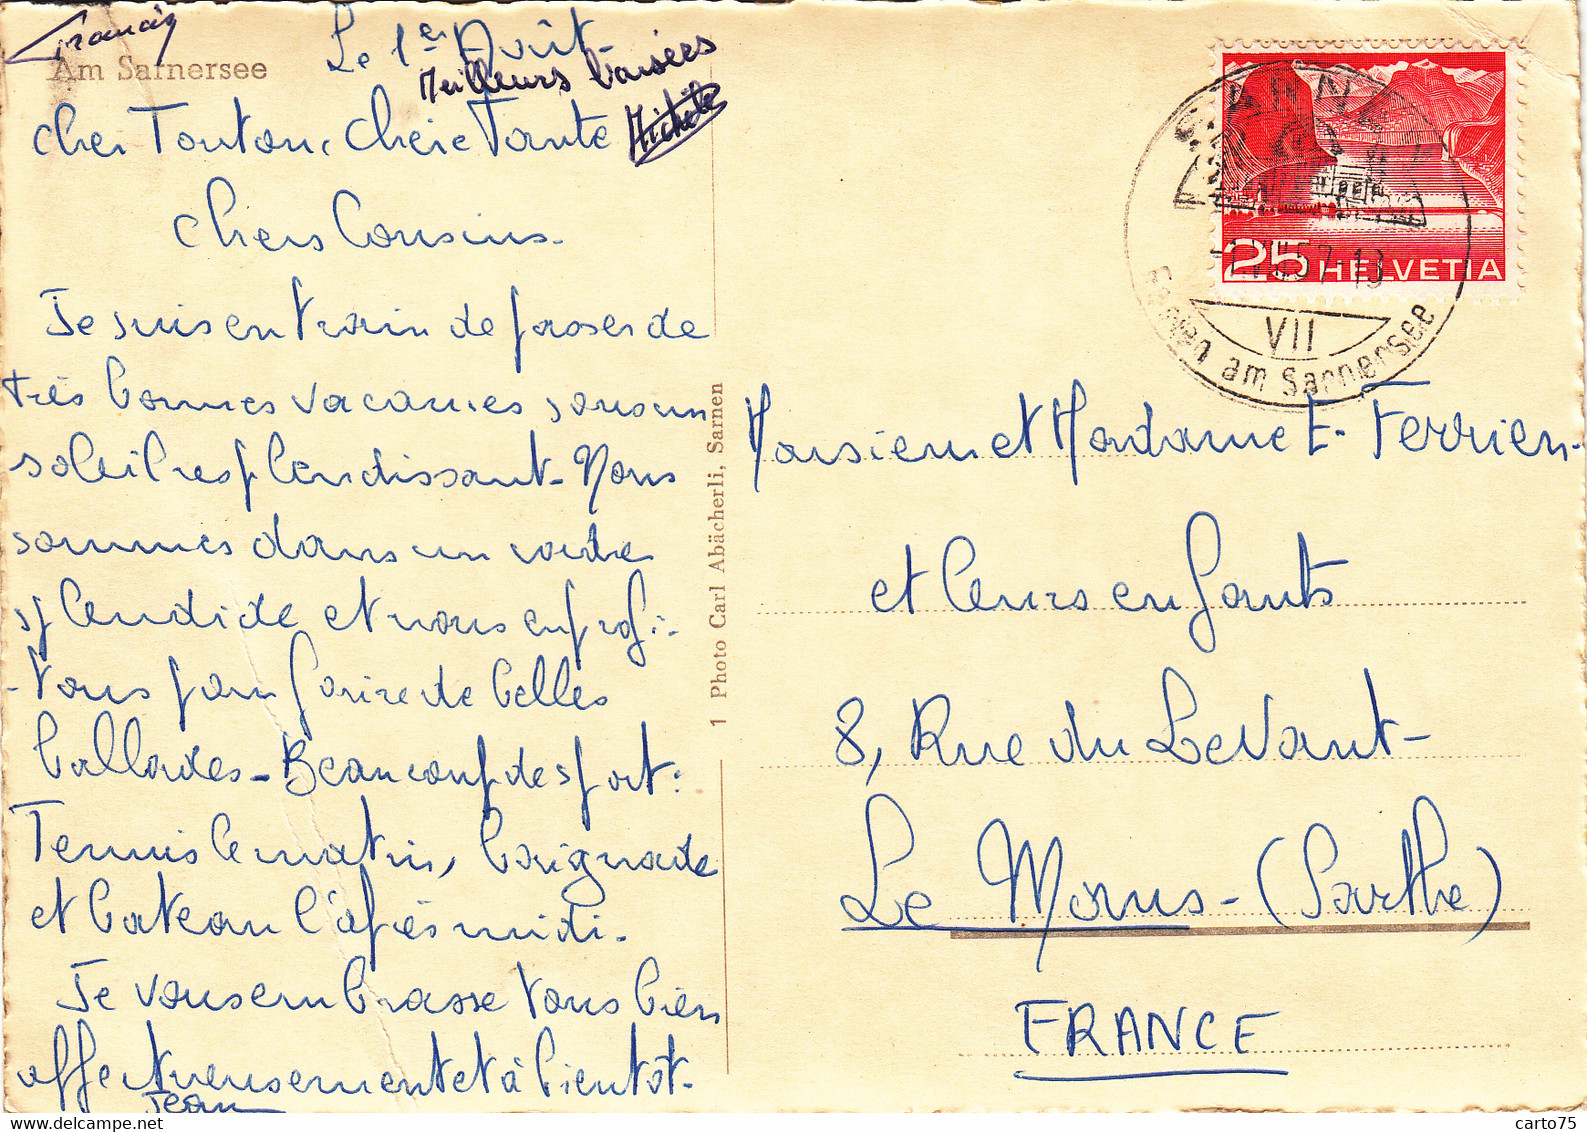 Francis
Am Sarnersee
Le 1er Août-
Meilleurs baisers
Michèle
Cher Tonton, Chère Tante
Chers Cousins.
Je suis en train de passer de
très bonnes vacances sous un
soleil resplendissant- Nous
sommes dans un cadre
splendide et nous en profi-
-tons pour faire de belles
ballades- Beaucoup de sport:
Tennis le matin, baignade
et bateau l'après midi.
Je vous embrasse tous bien
affectueusement et à bientôt-
Jean
1 Photo Carl Abächerli, Sarnen
SARNEN
25 HELVETIA
VIII 57-13
VII
Sarnen am Sarnersee
Monsieur et Madame E- Terrien-
et leurs enfants
8, Rue du Levant-
Le Mans- (Sarthe)
FRANCE
carto75